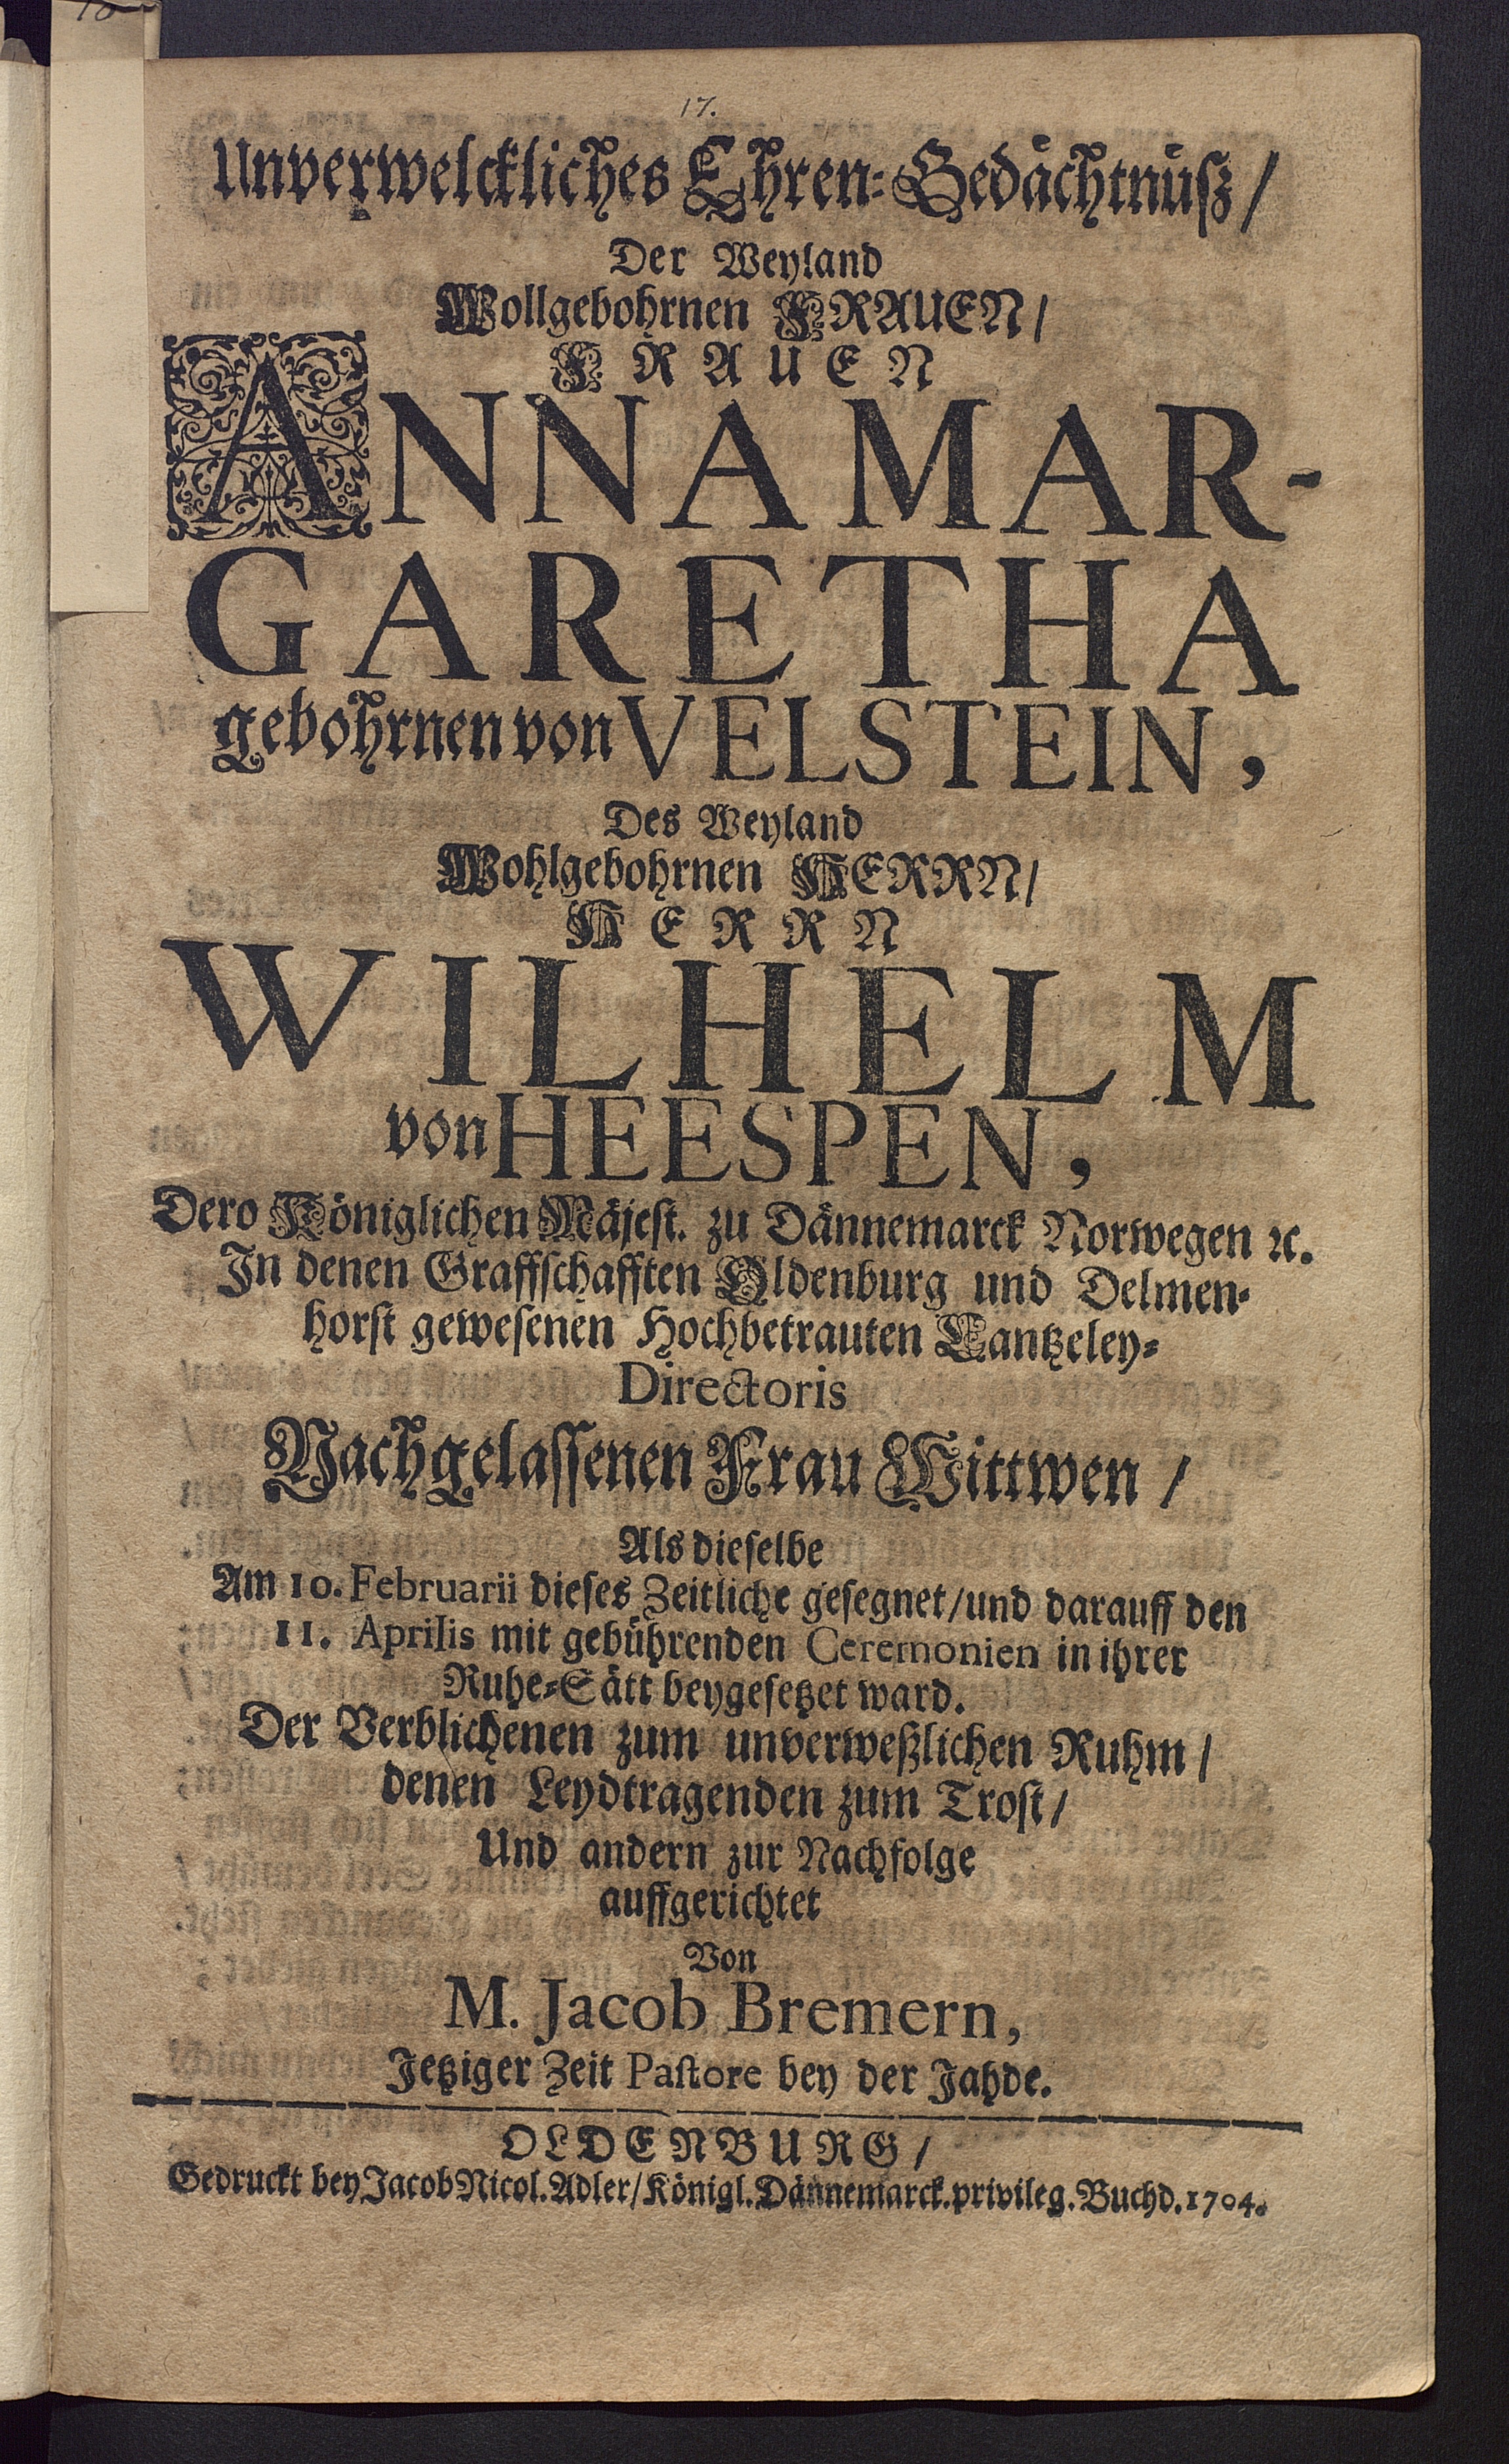 17.
Unverwelckliches Ehren-Gedächtnüß/
Der Weyland
Wollgebohrnen FRAUEN/
FRAUEN
ANNA MAR-
GARETHA
gebohrnen von VELSTEIN,
Des Weyland
Wohlgebohrnen HERRN/
HERRN
WILHELM
von HEESPEN,
Dero Königlichen Mäjest. zu Dännemarck Norwegen ꝛc.
In denen Graffschafften Oldenburg und Delmen-
horst gewesenen Hochbetrauten Cantzeley-
Directoris
Nachgelassenen Frau Wittwen /
Als dieselbe
Am 10. Februarii dieses Zeitliche gesegnet/und darauff den
11. Aprilis mit gebührenden Ceremonien in ihrer
Ruhe-Sätt beygesetzet ward.
Der Verblichenen zum unverweßlichen Ruhm/
denen Leydtragenden zum Trost/
Und andern zur Nachfolge
auffgerichtet
Von
M. Jacob Bremern,
Jetziger Zeit Pastore bey der Jahde.
OLDENBURG/
Gedruckt bey Jacob Nicol. Adler/Königl. Dännemarck. privileg. Buchd. 1704.